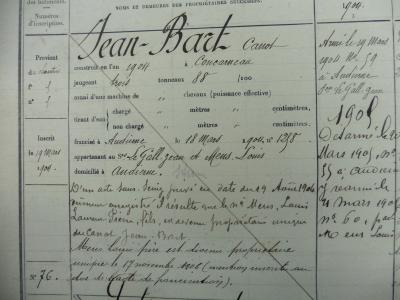 NOMS ET DEMEURES DES PROPRIÉTAIRES SUCCESSIFS.
Numéros
d'inscription.
Provient
Inscrit
19 Mars
N° 76.
Jean-Bart Canot
construit en l'an 1904 à Concarneau
jaugeant trois tonneaux 88 /100
muni d'une machine de " chevaux (puissance effective)
tirant d'eau chargé " mètres " centimètres,
non chargé " mètres " centimètres,
francisé à Audierne le 18 Mars 1904 n° 1258
appartenant au Sr Le Gall Jean et Mens Louis
domicilié à Audierne.
D'un acte sous seing privé en date du 29 Août 1904
enregistré il résulte que le Sr Mens, Louis
Laurent Pierre, fils, est devenu propriétaire unique
du canot Jean-Bart
Mens Louis père est devenu propriétaire
unique le 17 novembre (mention inscrite au
dos de l'acte de francisation).
Armé le 19 Mars
1904 N° 59
à Audierne
Le Gall Jean
1905
Désarmé le 20
Mars 1905, N°
55 à Audierne
y réarmé le
21 Mars 1905
N° 60, par
Mens Louis